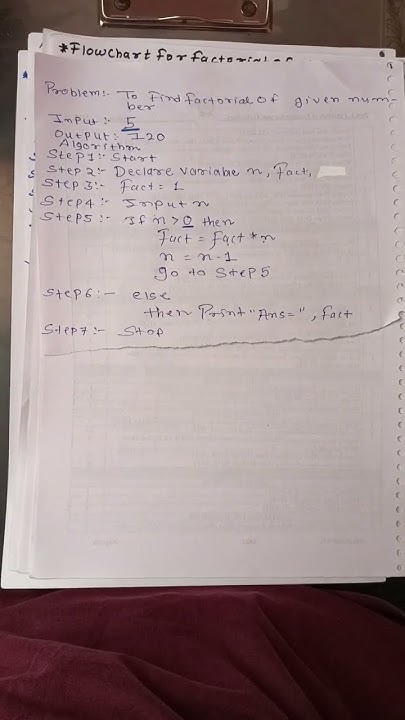 *Flowchart for factorial of
Problem:- To Find factorial Of given num-
ber
Input:- 5
Output:- 120
Algorithm
Step1:- Start
Step2:- Declare variable n, Fact,
Step3:- Fact=1
Step4:- Input n
Step5:- If n>0 then
Fact = fact*n
n = n-1
go to Step5
Step6:- else
then Print "Ans=", fact
Step7:- Stop